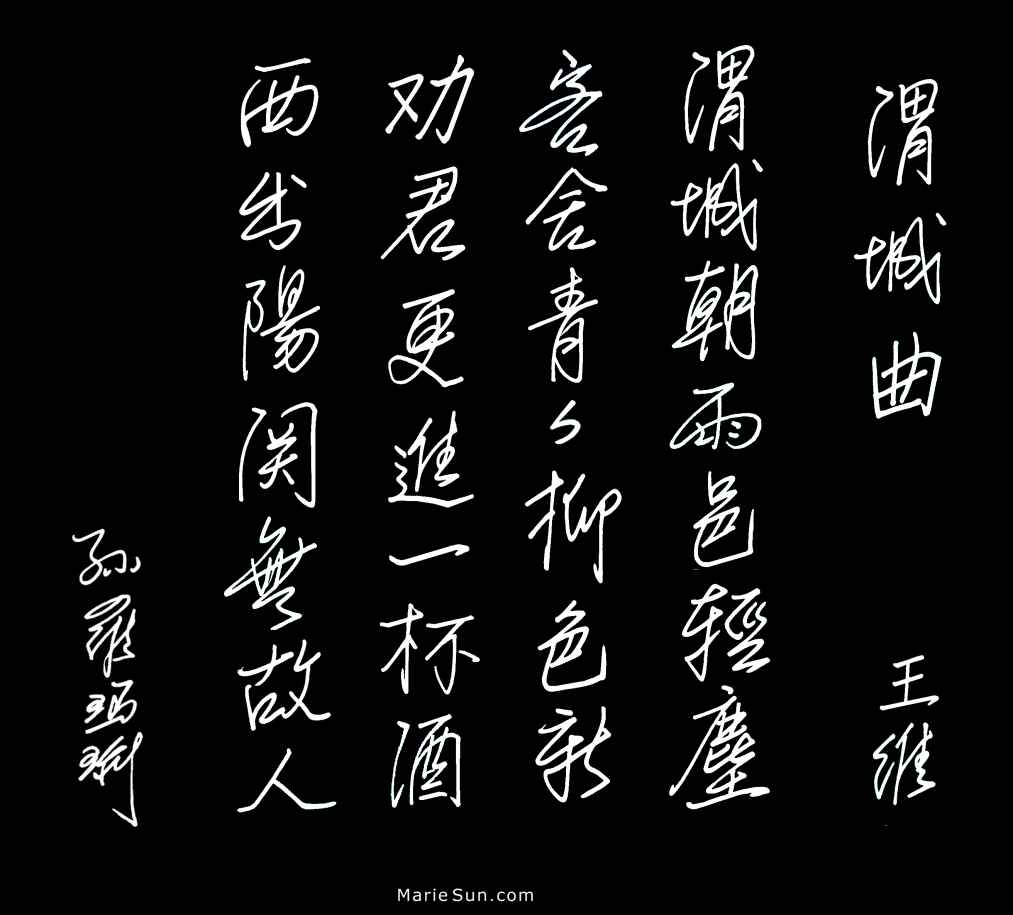 渭城曲 王維
渭城朝雨邑輕塵
客舍青々柳色新
劝君更進一杯酒
西出陽関無故人
孫羅瑪琍
MarieSun.com